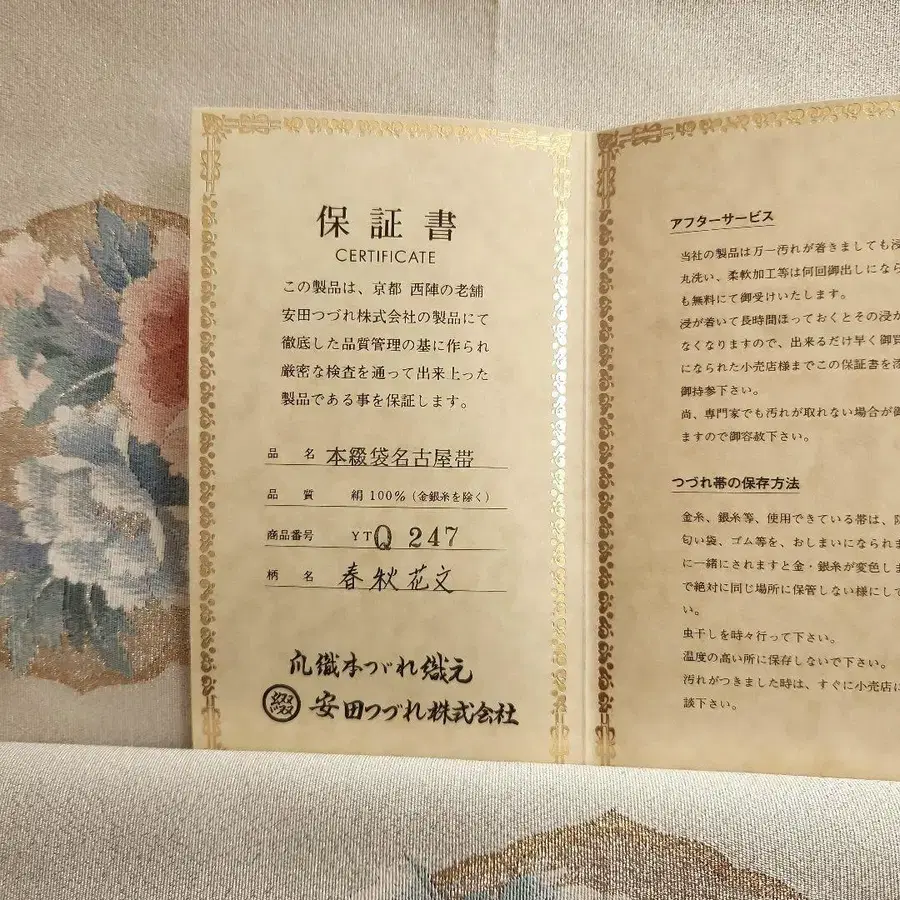 保証書
CERTIFICATE
この製品は、京都 西陣の老舗
安田つづれ株式会社の製品にて
徹底した品質管理の基に作られ
厳密な検査を通って出来上った
製品である事を保証します。
品 名 本綴袋名古屋帯
品 質 絹100%(金銀糸を除く)
商品番号 YTQ 247
柄 名 春秋花文
爪織本つづれ織元
安田つづれ株式会社
アフターサービス
当社の製品は万一汚れが着きましても浸
丸洗い、柔軟加工等は何回御出しになら
も無料にて御受けいたします。
浸が着いて長時間ほっておくとその浸が
なくなりますので、出来るだけ早く御買
になられた小売店様までこの保証書を添
御持参下さい。
尚、専門家でも汚れが取れない場合が御
ますので御容赦下さい。
つづれ帯の保存方法
金糸、銀糸等、使用できている帯は、防
匂い袋、ゴム等を、おしまいになられま
に一緒にされますと金・銀糸が変色しま
で絶対に同じ場所に保管しない様にして
い。
虫干しを時々行って下さい。
温度の高い所に保存しないで下さい。
汚れがつきました時は、すぐに小売店に
談下さい。